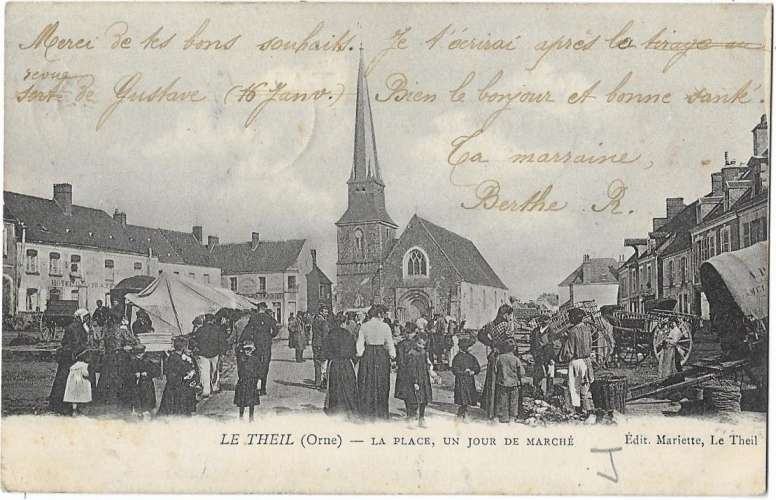 Merci de tes bons souhaits. Je t'écrirai après le tirage au
revue
sort de Gustave (16 Janv.) Bien le bonjour et bonne santé.
Ta marraine,
Berthe R.
LE THEIL (Orne) — LA PLACE, UN JOUR DE MARCHÉ
Édit. Mariette, Le Theil